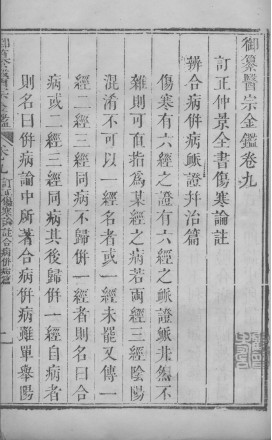 御纂醫宗金鑑卷九
訂正仲景全書傷寒論註
辨合病併病脈證并治篇
傷寒有六經之證有六經之脈證脈井然不
雜則可直指為某經之病若兩經三經陰陽
混淆不可以一經名者或一經未罷又傳一
經二經三經同病不歸併一經者則名曰合
病或二經三經同病其後歸併一經自病者
則名曰併病論中所著合病併病雖單舉陽
御纂醫宗金鑑
卷九
訂正傷寒論註合病併病篇
一